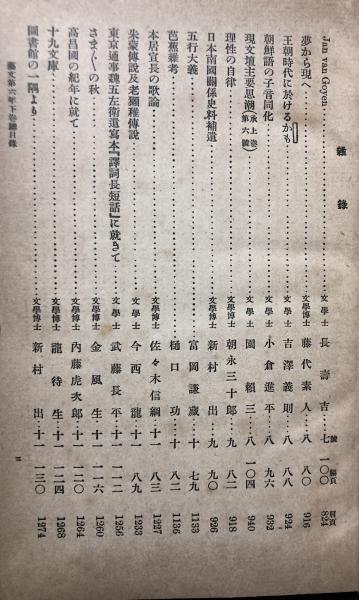 雜錄
號 頁 頁
Jan van Goyen……文學士 長 壽 吉…七 一〇〇 824
夢から現へ……文學博士 藤代素人…八 八〇 916
王朝時代に於けるかも……文學士 吉澤義則…八 八八 924
朝鮮語の子音同化……文學士 小倉進平…八 九六 932
現文壇主要思潮(承上巻第六號)……文學士 園 賴三…八 一〇四 940
理性の自律……文學博士 朝永三十郎…九 八二 918
日本南國關係史料補遺……文學博士 新村 出…九 九〇 926
五行大義……富岡謙藏…十 七九 1133
芭蕉雜考……樋口 功…十 八二 1136
本居宣長の歌論……文學博士 佐々木信綱…十一 八三 1227
朱蒙傳說及老獺稚傳說……文學士 今西 龍…十一 八九 1233
東京通事魏五左衛遺寫本『譯詞長短話』に就きて……文學士 武藤長平…十一 一一二 1256
さま〲の秋……文學博士 金風生…十一 一一六 1260
高昌國の紀年に就て……文學博士 內藤虎次郎…十一 一二〇 1264
十九文庫……文學博士 龍待生…十一 一二四 1268
圖書館の一隅より……文學博士 新村 出…十一 一三〇 1274
藝文第六年下卷總目錄
三